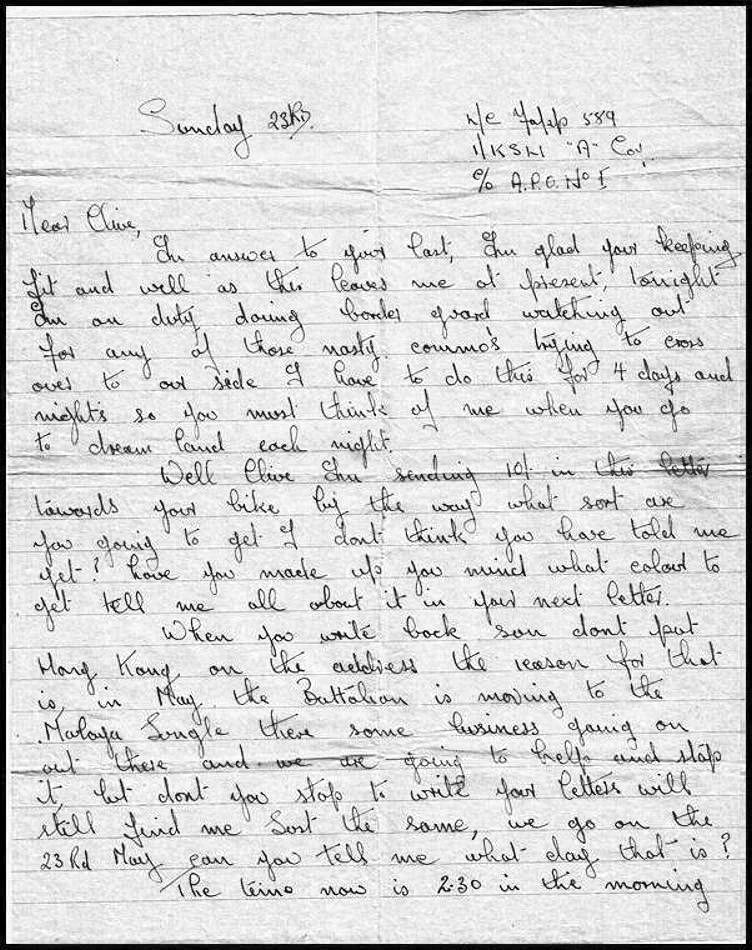 Sunday 23RD.
589
1/KSLI "A" Coy.
c/o A.P.O. No 1
Dear Clive,
Im answer to your last, Im glad your keeping
fit and well as this leaves me at present, tonight
Im on duty doing border guard watching out
for any of those nasty commo's trying to cross
over to our side I have to do this for 4 days and
nights so you must think of me when you go
to dream land each night.
Well Clive Im sending 10/- in this letter
towards your bike by the way what sort are
you going to get I dont think you have told me
yet? have you made up you mind what colour to
get tell me all about it in your next letter.
When you write back son dont put
Hong Kong on the address the reason for that
is, in May the Battalion is moving to the
Malaya Jungle there some business going on
out there and we are going to help and stop
it, but dont you stop to write your letters will
still find me Just the same, we go on the
23Rd May can you tell me what day that is?
The time now is 2.30 in the morning